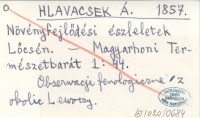 HLAVACSEK Á. 1857.
Növényfejlődési észleletek
Lőcsén. – Magyarhoni Ter-
mészetbarát 1: 44.
Obserwacje fenologiczne z
okolic Lewoczy.
B/1020/0684